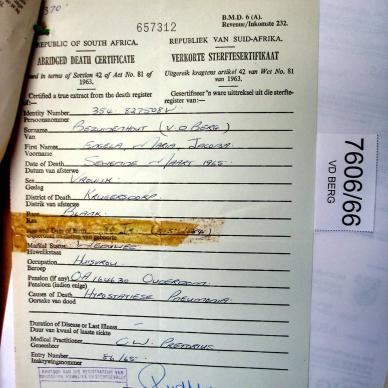 370
657312
B.M.D. 6 (A).
Revenue/Inkomste 232.
REPUBLIC OF SOUTH AFRICA.
REPUBLIEK VAN SUID-AFRIKA.
ABRIDGED DEATH CERTIFICATE
VERKORTE STERFTESERTIFIKAAT
Issued in terms of Section 42 of Act No. 81 of 1963.
Uitgereik kragtens artikel 42 van Wet No. 81 van 1963.
Certified a true extract from the death register of:—
Gesertifiseer 'n ware uittreksel uit die sterfteregister van:—
Identity Number 354 827508W
Persoonsnommer
Surname BEZUIDENHOUT (V.D BERG)
Van
First Name ENGELA MARIA JACOBA
Voorname
Date of Death SEWENDE MAART 1965
Datum van afsterwe
Sex VROULIK
Geslag
District of Death KRUGERSDORP
Distrik van afsterwe
Race BLANK
Ras
Marital Status WEDUWEE
Huwelikstaat
Occupation HUISVROU
Beroep
Pension (if any) OA 164630 OUDERDOM
Pensioen (indien enige)
Causes of Death HYPOSTATIESE PNEUMONIA
Oorsake van dood
Duration of Disease or Last Illness —
Duur van kwaal of laaste siekte
Medical Practitioner C.W. PRETORIUS
Geneesheer
Entry Number 86/65
Inskrywingsnommer
7606/66
VD BERG